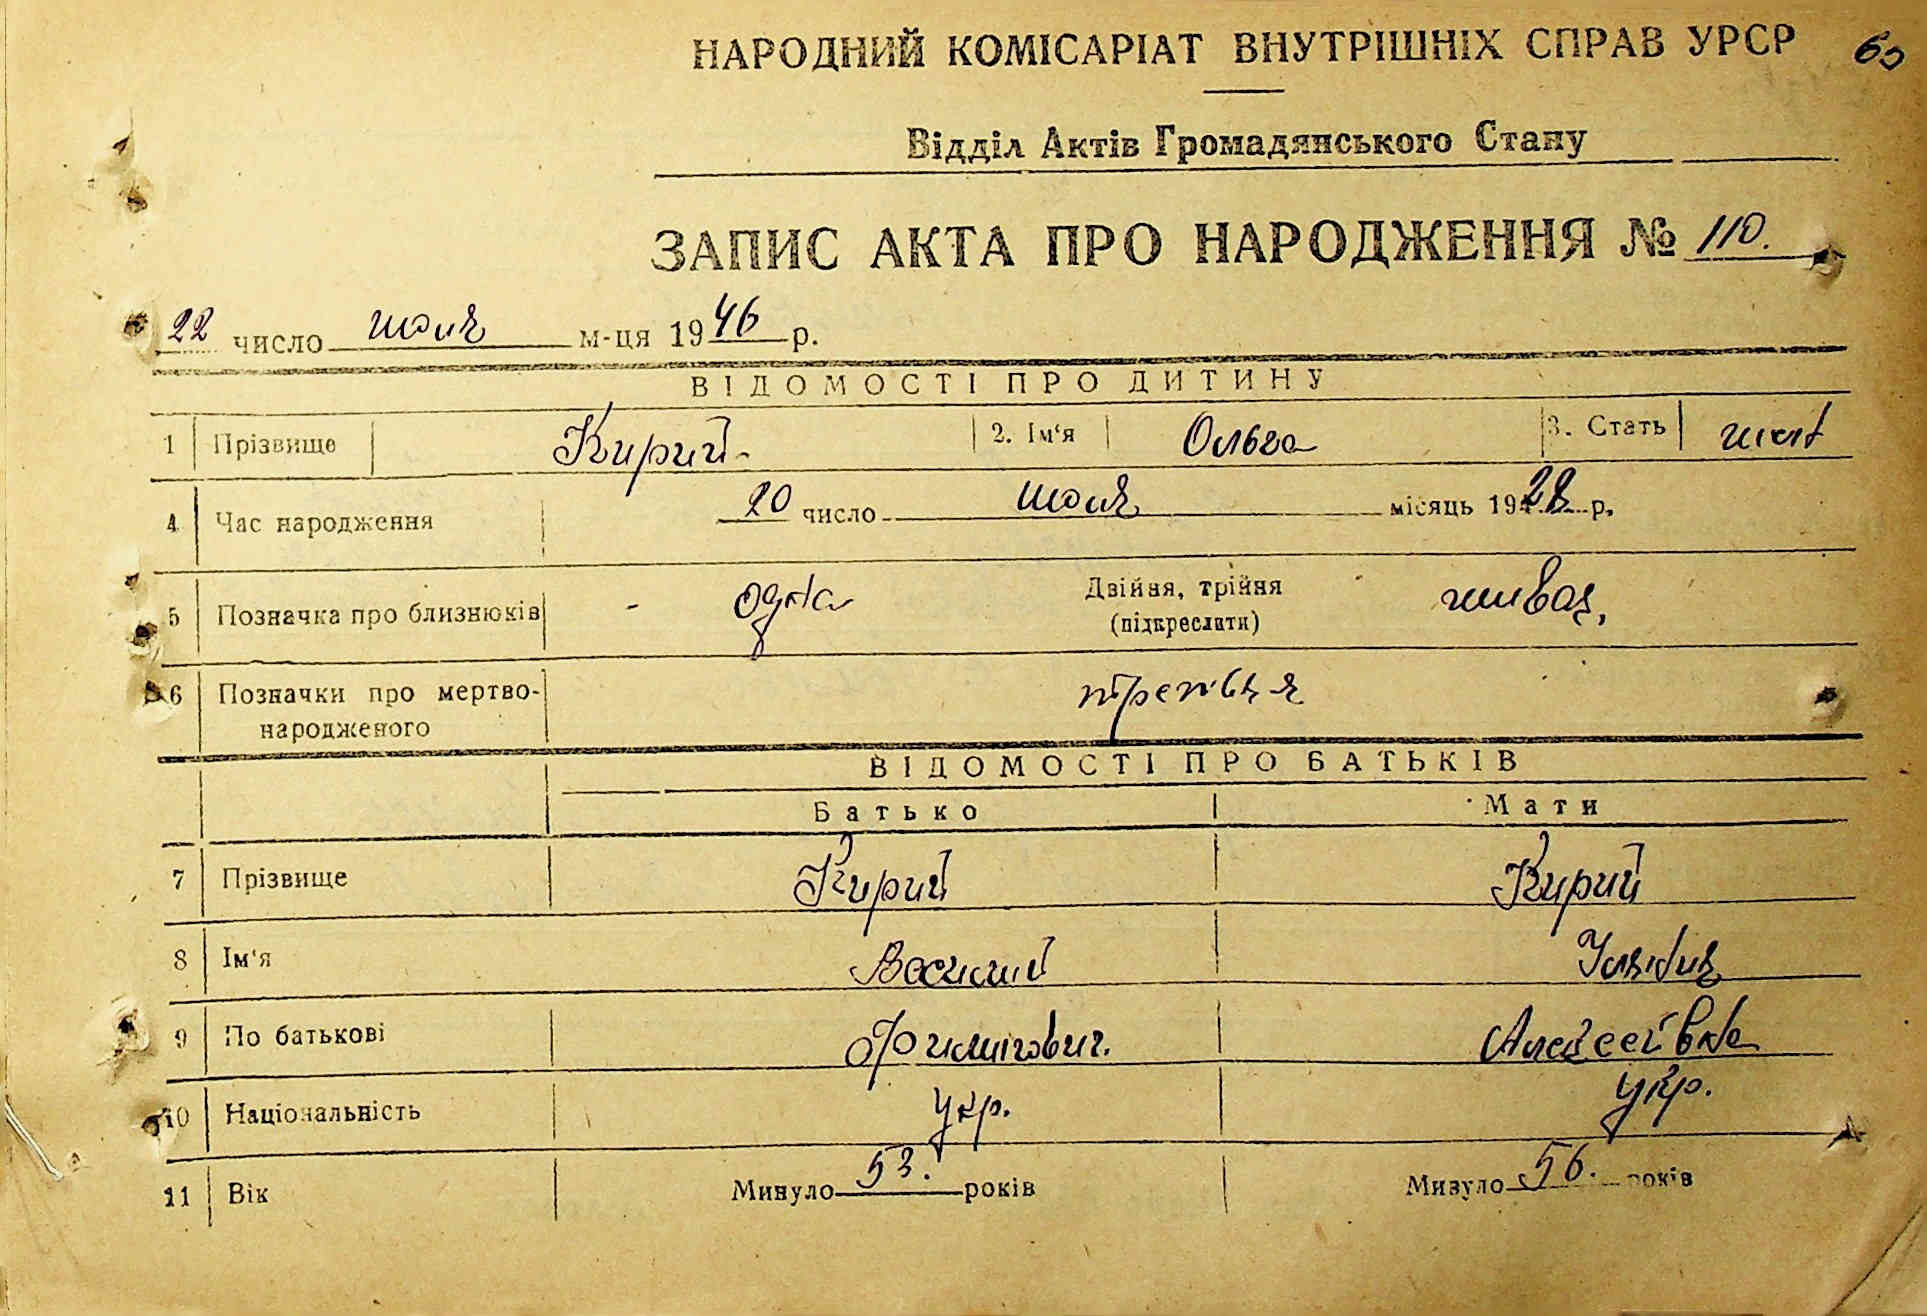 НАРОДНИЙ КОМІСАРІАТ ВНУТРІШНІХ СПРАВ УРСР 60
Відділ Актів Громадянського Стану
ЗАПИС АКТА ПРО НАРОДЖЕННЯ № 110.
22 число июля м-ця 1946 р.
ВІДОМОСТІ ПРО ДИТИНУ
1 Прізвище Кирий 2. Ім'я Ольга 3. Стать жен
4 Час народження 20 число июля місяць 1928 р.
5 Позначка про близнюків - одна Двійня, трійня живая,
(підкреслити)
6 Позначки про мертво-
народженого третья
ВІДОМОСТІ ПРО БАТЬКІВ
Батько Мати
7 Прізвище Кирий Кирий
8 Ім'я Василий
9 По батькові Алексеевна
10 Національність укр. укр.
11 Вік Минуло 53. років Минуло 56. років